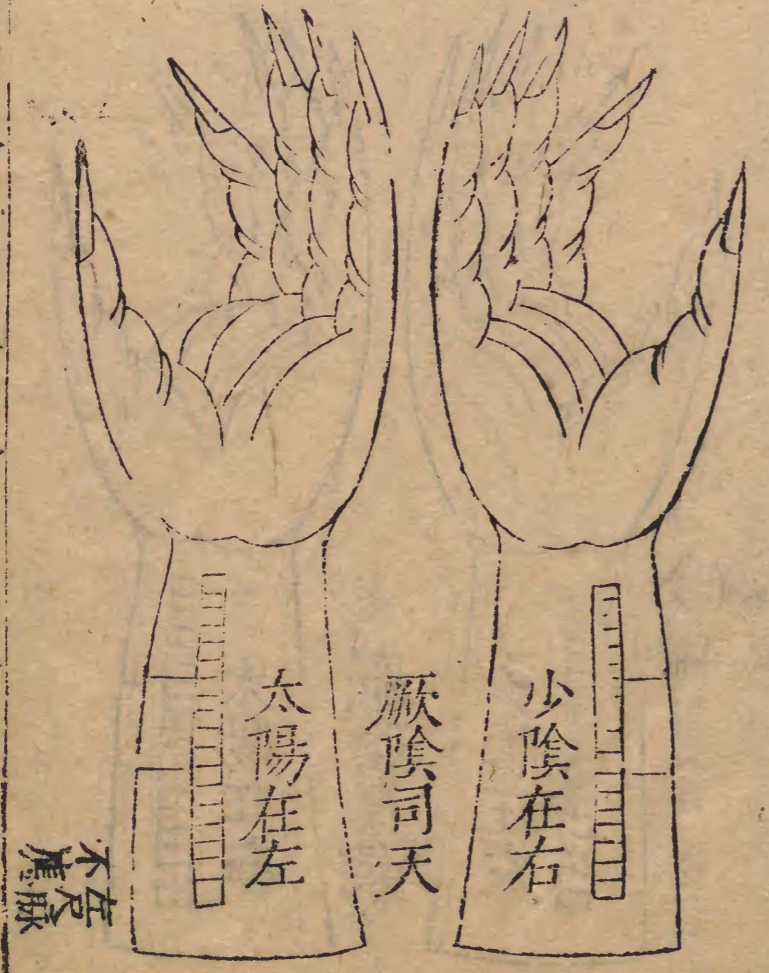 少陰在右
厥陰司天
太陽在左
左尺脉
不應